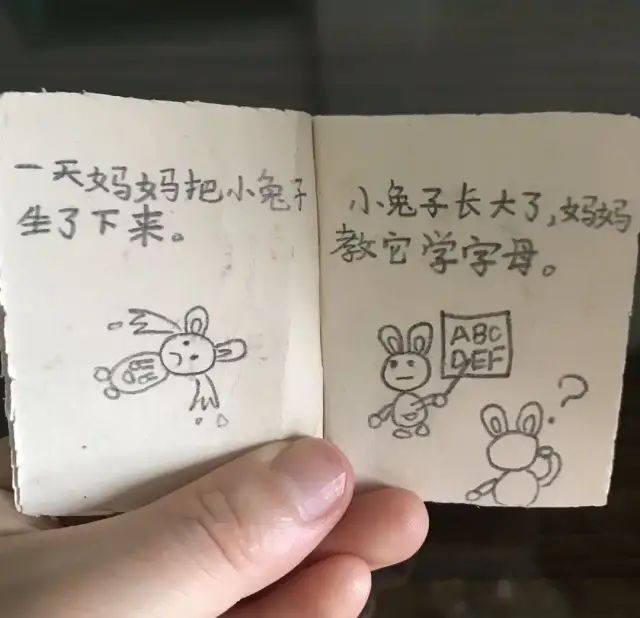 一天妈妈把小兔子
生了下来。
小兔子长大了,妈妈
教它学字母。
ABC
DEF
?